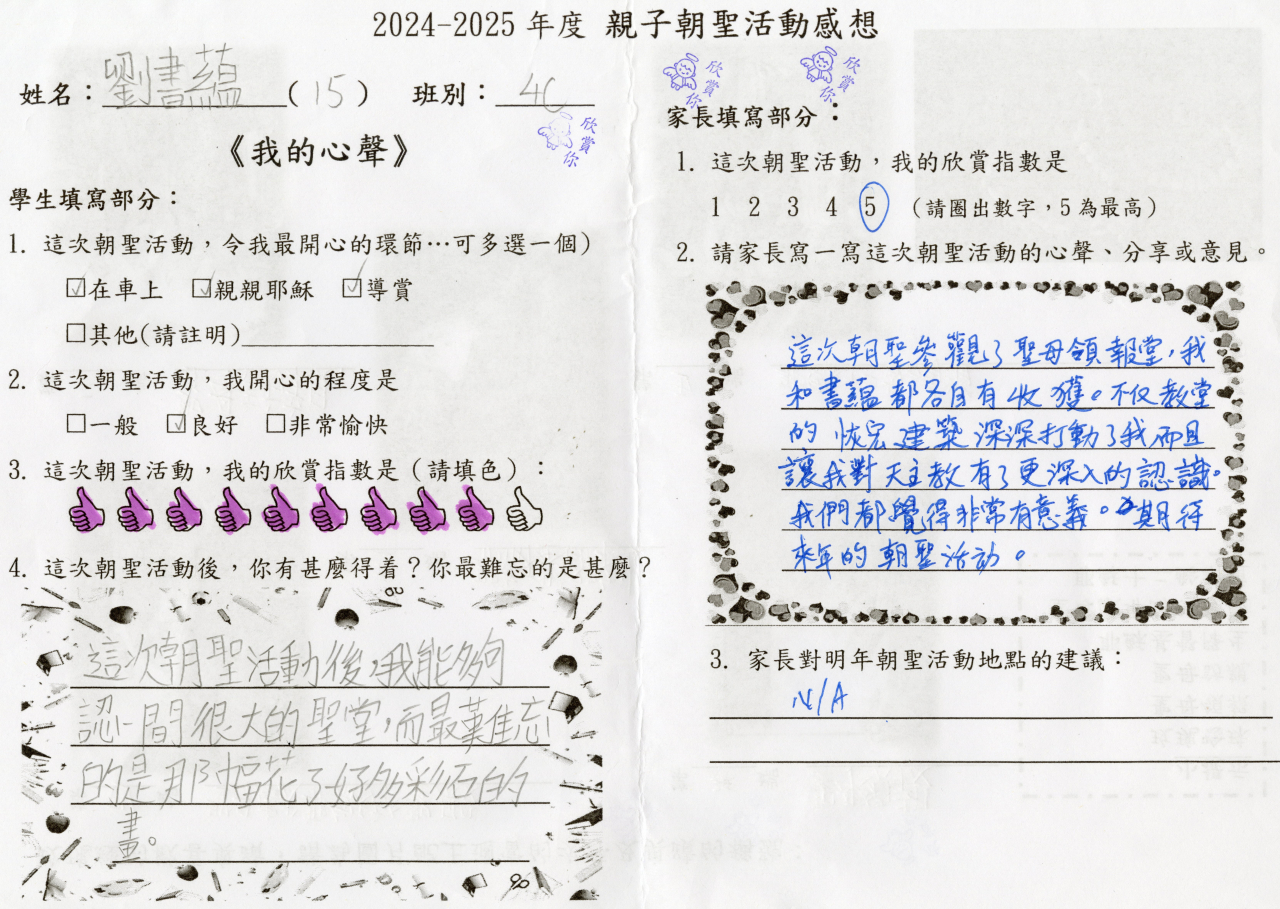 2024-2025 年度 親子朝聖活動感想
姓名：劉書蘊（15） 班別：4C
欣賞你
《我的心聲》
學生填寫部分：
1. 這次朝聖活動，令我最開心的環節…可多選一個）
☑在車上 ☑親親耶穌 ☑導賞
□其他(請註明)
2. 這次朝聖活動，我開心的程度是
□一般 ☑良好 □非常愉快
3. 這次朝聖活動，我的欣賞指數是（請填色）：
4. 這次朝聖活動後，你有甚麼得着？你最難忘的是甚麼？
這次朝聖活動後，我能夠
認一間很大的聖堂，而最難忘
的是那幅花了好多彩石的
畫。
欣賞你
欣賞你
家長填寫部分：
1. 這次朝聖活動，我的欣賞指數是
1 2 3 4 5 （請圈出數字，5 為最高）
2. 請家長寫一寫這次朝聖活動的心聲、分享或意見。
這次朝聖參觀了聖母領報堂，我
和書蘊都各自有收獲。不仅教堂
的恢宏建築深深打動了我而且
讓我對天主教有了更深入的認識。
我們都覺得非常有意義。期待
來年的朝聖活动。
3. 家長對明年朝聖活動地點的建議：
N/A